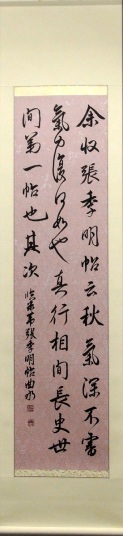 余收張季明帖云秋氣深不審
氣力復何如也真行相間長史世
間第一帖也其次
臨米芾張季明帖曲水